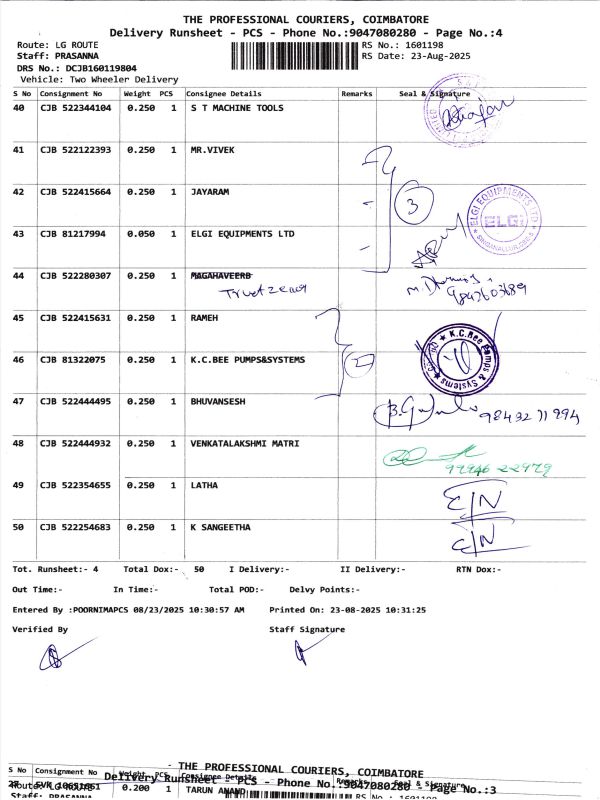 THE PROFESSIONAL COURIERS, COIMBATORE
Delivery Runsheet - PCS - Phone No.:9047080280 - Page No.:4
Route: LG ROUTE RS No.: 1601198
Staff: PRASANNA RS Date: 23-Aug-2025
DRS No.: DCJB160119804
Vehicle: Two Wheeler Delivery
S No Consignment No Weight PCS Consignee Details Remarks Seal & Signature
40 CJB 522344104 0.250 1 S T MACHINE TOOLS
41 CJB 522122393 0.250 1 MR.VIVEK
42 CJB 522415664 0.250 1 JAYARAM
3
ELGI EQUIPMENTS LTD
ELGI
43 CJB 81217994 0.050 1 ELGI EQUIPMENTS LTD
44 CJB 522280307 0.250 1 MAGAHAVEERB
9842603689
45 CJB 522415631 0.250 1 RAMEH
46 CJB 81322075 0.250 1 K.C.BEE PUMPS&SYSTEMS
2
K.C.Bee Pumps & Systems
47 CJB 522444495 0.250 1 BHUVANSESH
98432 71994
48 CJB 522444932 0.250 1 VENKATALAKSHMI MATRI
99946 22979
49 CJB 522354655 0.250 1 LATHA
E/N
50 CJB 522254683 0.250 1 K SANGEETHA
E/N
Tot. Runsheet:- 4 Total Dox:- 50 I Delivery:- II Delivery:- RTN Dox:-
Out Time:- In Time:- Total POD:- Delvy Points:-
Entered By :POORNIMAPCS 08/23/2025 10:30:57 AM Printed On: 23-08-2025 10:31:25
Verified By Staff Signature
THE PROFESSIONAL COURIERS, COIMBATORE
S No Consignment No Weight PCS Consignee Details Remarks Seal & Signature
Delivery Runsheet - PCS - Phone No.:9047080280 - Page No.:3
0.200 1 TARUN ANAND
Route: LG ROUTE
Staff: PRASANNA RS No.: 1601198